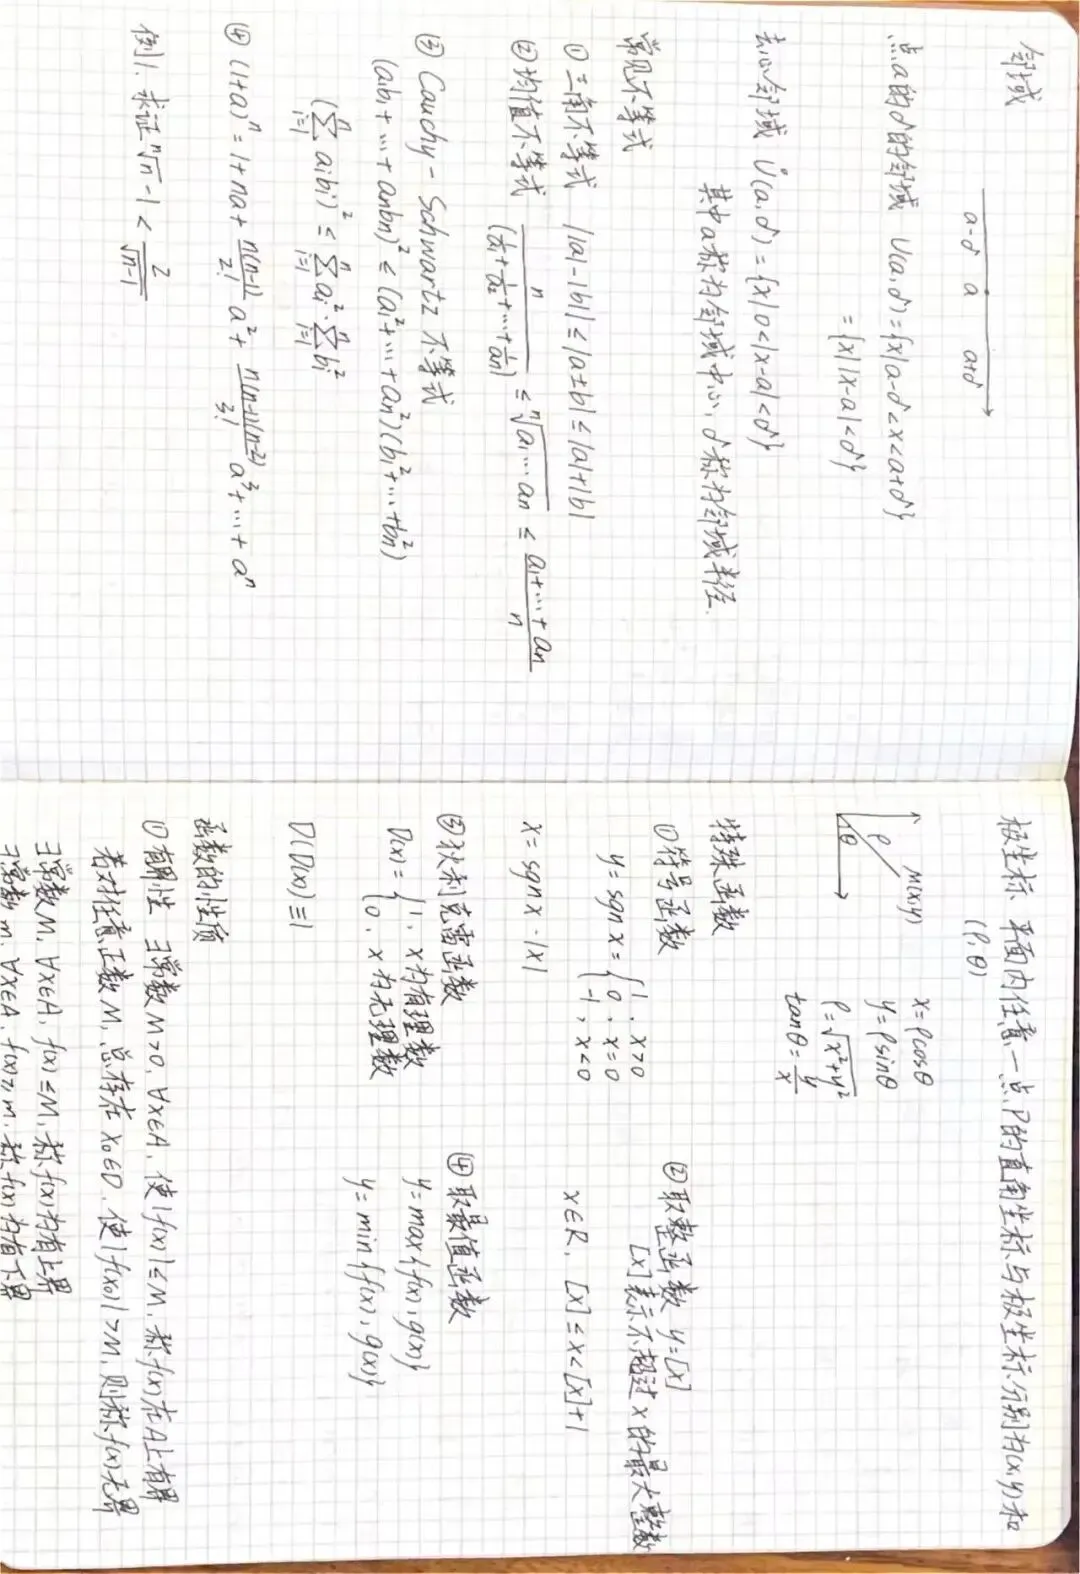 邻域
a-δ a a+δ
点a的δ的邻域 U(a,δ)={x|a-δ<x<a+δ}
={x||x-a|<δ}
去心邻域 Ů(a,δ)={x|0<|x-a|<δ}
其中a称为邻域中心,δ称为邻域半径.
常见不等式
① 三角不等式 ||a|-|b||≤|a±b|≤|a|+|b|
② 均值不等式 n/(1/a₁+1/a₂+…+1/aₙ) ≤ ⁿ√(a₁…aₙ) ≤ (a₁+…+aₙ)/n
③ Cauchy-Schwartz 不等式
(a₁b₁+…+aₙbₙ)²≤(a₁²+…+aₙ²)(b₁²+…+bₙ²)
(∑ᵢ₌₁ⁿ aᵢbᵢ)²≤∑ᵢ₌₁ⁿ aᵢ²·∑ᵢ₌₁ⁿ bᵢ²
④ (1+a)ⁿ=1+na+n(n-1)/2! a²+n(n-1)(n-2)/3! a³+…+aⁿ
例1. 求证 ⁿ√n-1<2/√(n-1)
极坐标 平面内任意一点P的直角坐标与极坐标分别为(x,y)和
(ρ,θ)
M(x,y)
ρ
θ
x=ρcosθ
y=ρsinθ
ρ=√(x²+y²)
tanθ=y/x
特殊函数
①符号函数
y=sgn x={1, x>0
0, x=0
-1, x<0
x=sgn x·|x|
②取整函数 y=[x]
[x]表示不超过x的最大整数
x∈R, [x]≤x<[x]+1
③狄利克雷函数
D(x)={1, x为有理数
0, x为无理数
D(D(x))≡1
④取最值函数
y=max{f(x),g(x)}
y=min{f(x),g(x)}
函数的性质
①有界性 ∃常数M>0,∀x∈A,使|f(x)|≤M,称f(x)在A上有界
若对任意正数M,总存在x₀∈D,使|f(x₀)|>M,则称f(x)无界
∃常数M,∀x∈A,f(x)≤M,称f(x)为有上界
∃常数m,∀x∈A,f(x)≥m,称f(x)为有下界